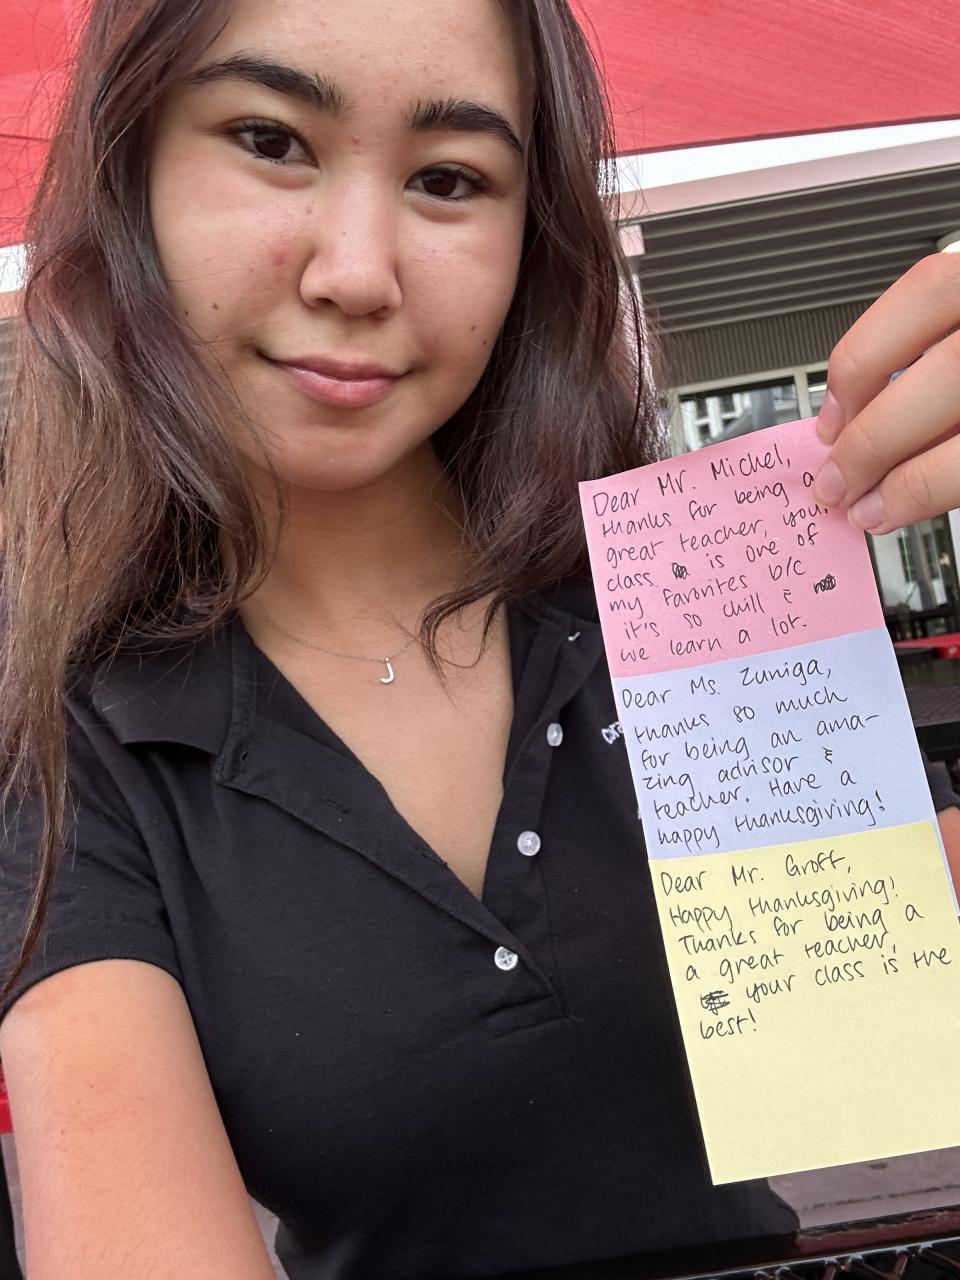 Dear Mr. Michel,
thanks for being a
great teacher, your
class is one of
my favorites b/c
it's so chill &
we learn a lot.
Dear Ms. Zuniga,
thanks so much
for being an ama-
zing advisor &
teacher. Have a
happy thanksgiving!
Dear Mr. Groff,
Happy thanksgiving!
Thanks for being a
a great teacher,
your class is the
best!
J